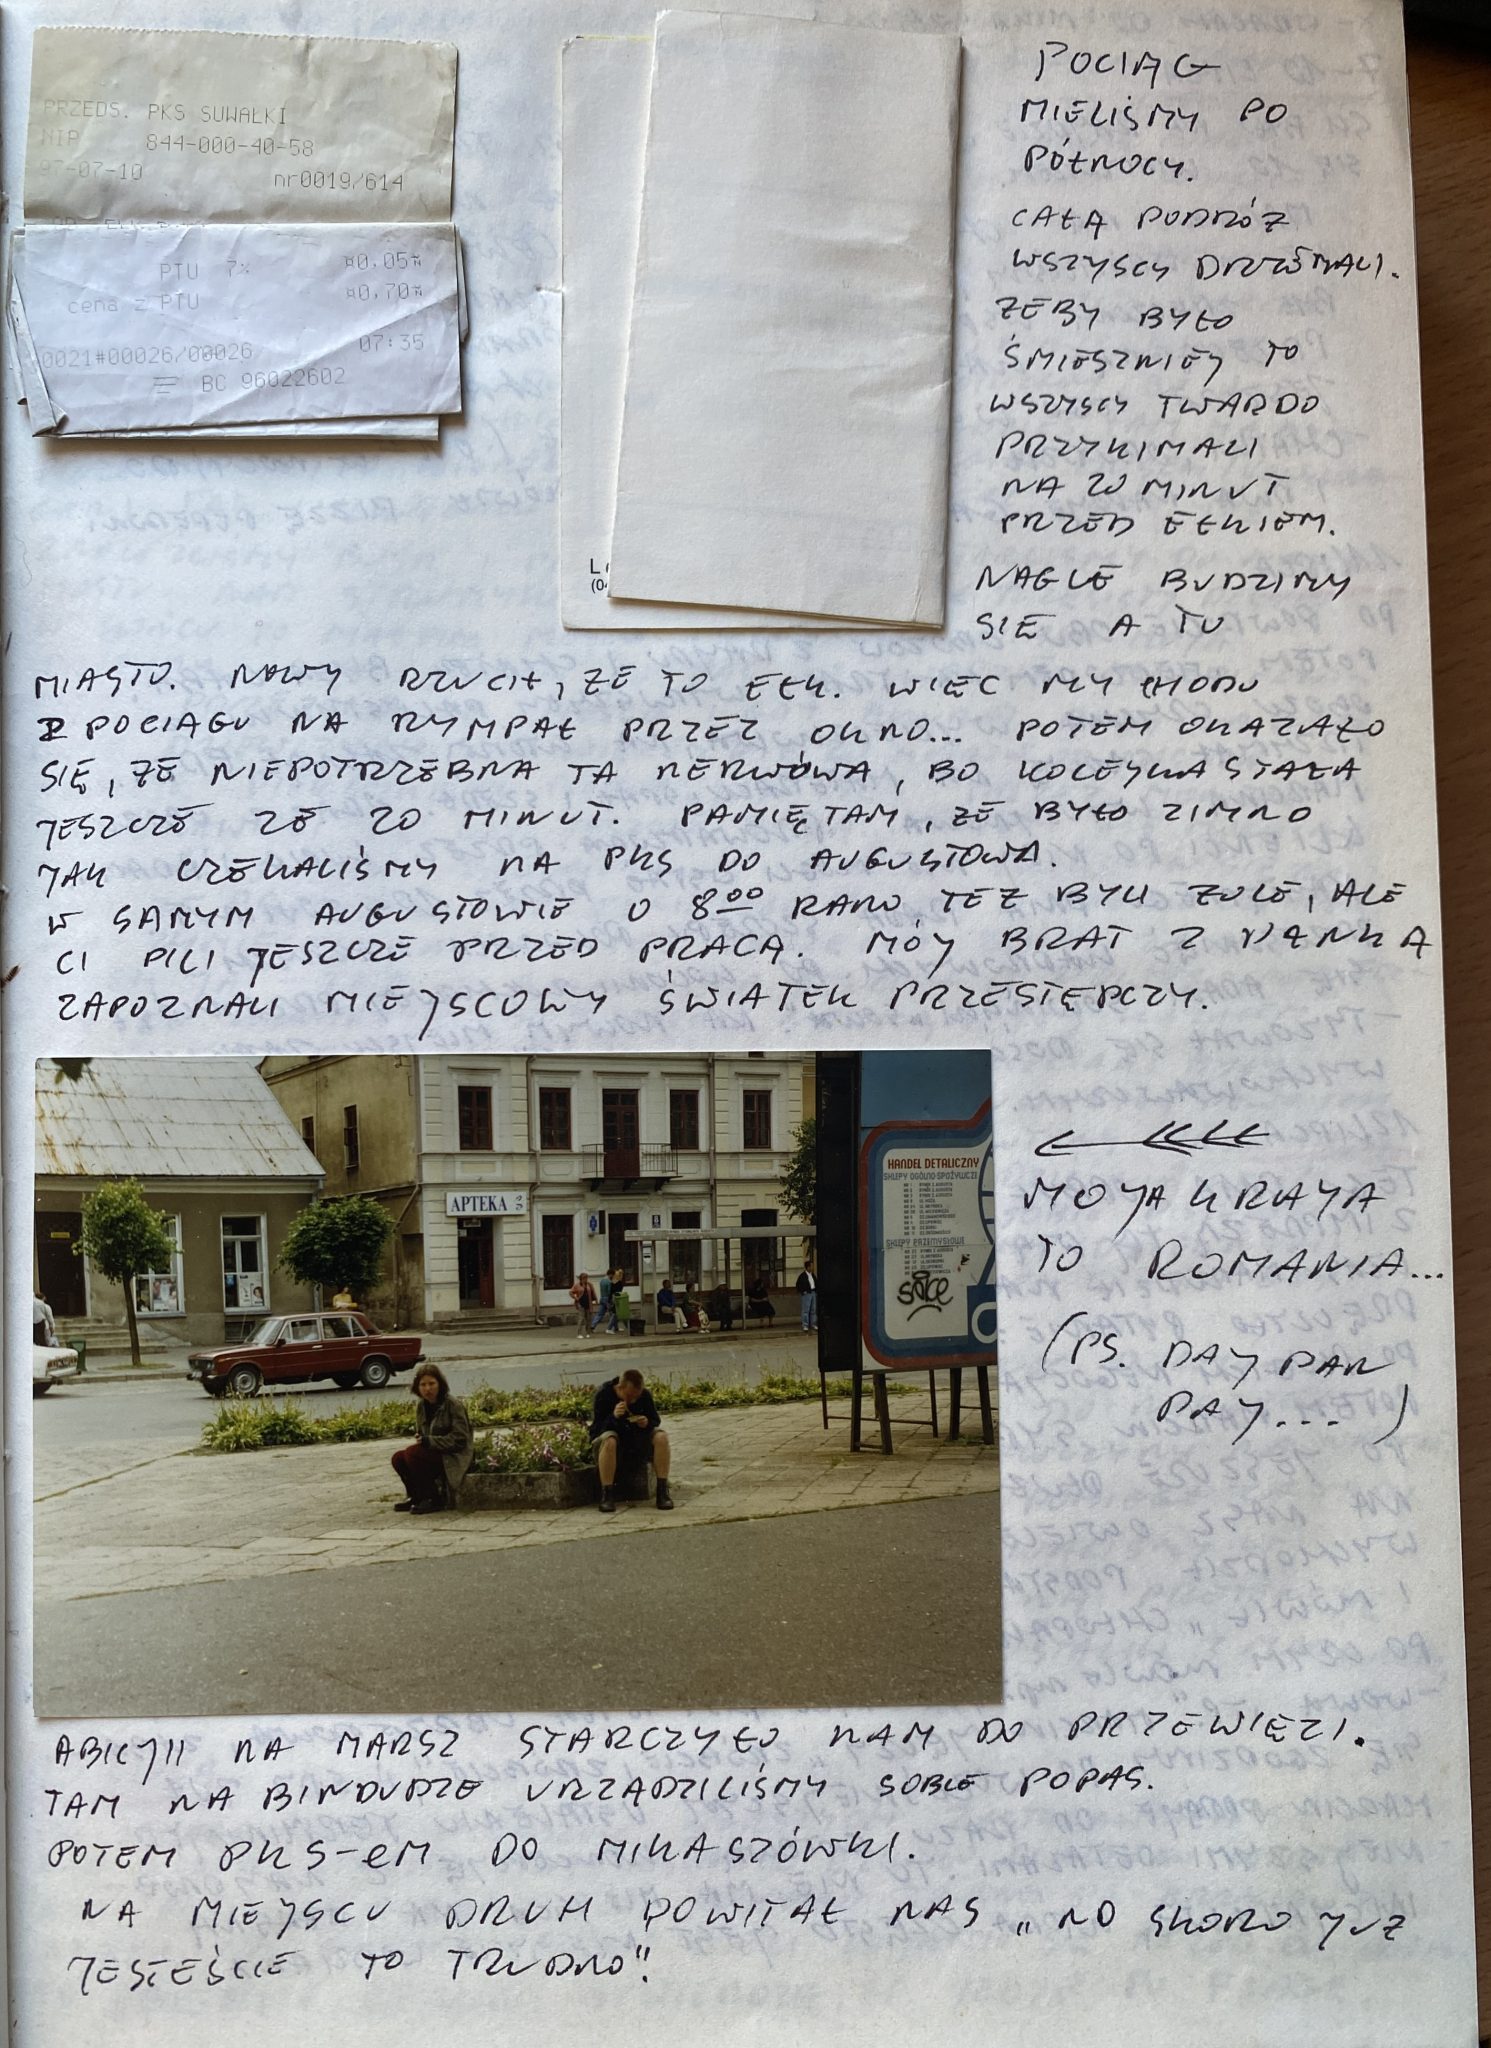 PRZEDS. PKS SUWAŁKI
NIP 844-000-40-58
97-07-10 nr0019/614
PTU 7% ¤0.05
cena z PTU ¤0.70
07:35
0021#00026/00026
BC 96022602
POCIĄG
MIELIŚMY PO
PÓŁNOCY.
CAŁĄ PODRÓŻ
WSZYSCY DRZEMALI.
ŻEBY BYŁO
ŚMIESZNIEJ TO
WSZYSCY TWARDO
PRZYKIMALI
NA 20 MINUT
PRZED EŁKIEM.
NAGLE BUDZIMY
SIĘ A TU
MIASTO. NAWY RZUCIŁ, ŻE TO EŁK. WIĘC MY CHODU
Z POCIĄGU NA RYMPAŁ PRZEZ OKNO... POTEM OKAZAŁO
SIĘ, ŻE NIEPOTRZEBNA TA NERWÓWA, BO KOLEJKA STAŁA
JESZCZE ZE 20 MINUT. PAMIĘTAM, ŻE BYŁO ZIMNO
JAK CZEKALIŚMY NA PKS DO AUGUSTOWA.
W SAMYM AUGUSTOWIE O 8⁰⁰ RANO TEŻ BYLI ŻULE, ALE
CI PILI JESZCZE PRZED PRACĄ. MÓJ BRAT Z
ZAPOZNALI MIEJSCOWY ŚWIATEK PRZESTĘPCZY.
APTEKA
HANDEL DETALICZNY
SKLEPY OGÓLNO-SPOŻYWCZE
SKLEPY PRZEMYSŁOWE
MOJA KRAJA
TO ROMANIA...
(PS. DAJ PAN
PAJ...)
ABICJI NA MARSZ STARCZYŁO NAM DO PRZEWIĘZI.
TAM NA BINDUDZE URZĄDZILIŚMY SOBIE POPAS.
POTEM PKS-eM DO MIKASZÓWKI.
NA MIEJSCU DRUH POWITAŁ NAS „NO SKORO JUŻ
JESTEŚCIE TO TRUDNO".